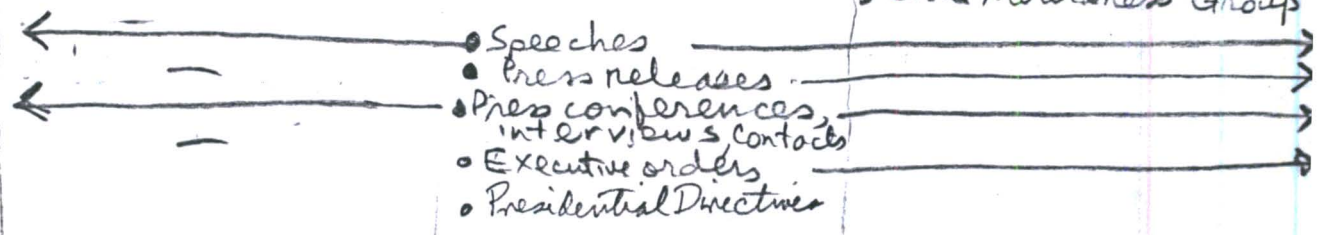 Group
• Speeches
• Press releases
• Press conferences,
interviews, contacts
• Executive orders
• Presidential Directives